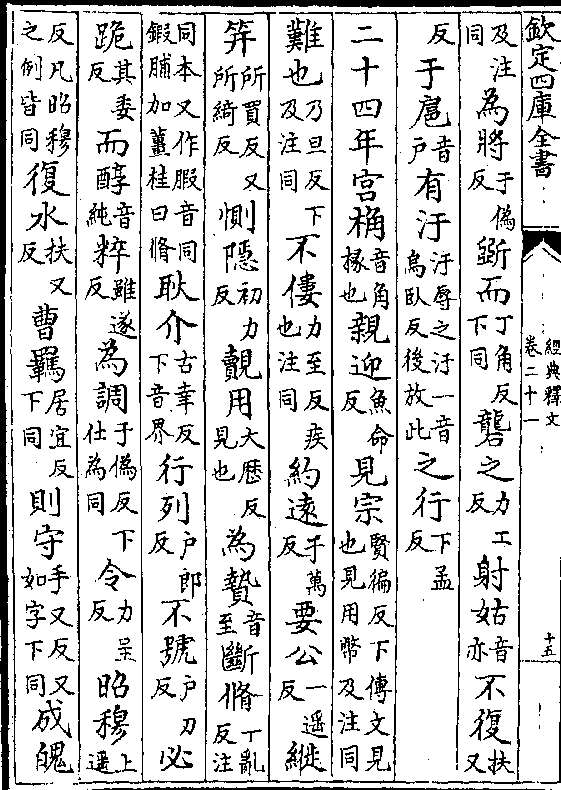 欽定四庫全書
經典釋文
卷二十一
十五
及注同為將于偽反斲而丁角反下同礱之力工反射姑音亦不復扶又
反于扈音戶有汙汙辱之汙一音烏臥反後放此之行下孟反
二十四年宮桷音角椽也親迎魚命反見宗賢徧反下傳文見也見用幣及注同
難也乃旦反下及注同不僂力至反疾也注同約遠于萬反要公一遥反縰
笄所買反又所綺反惻隱初力反覿用大歷反見也為贄音至斷脩丁亂反注
同本又作腶音同鍛脯加薑桂曰脩耿介古幸反下音界行列戶郎反不號戶刀反必
跪其委反而醇音純粹雖遂反為調于偽反下仕為同令力呈反昭穆上遥
反凡昭穆之例皆同復水扶又反曹羈居宜反下同則守手又反又如字下同成